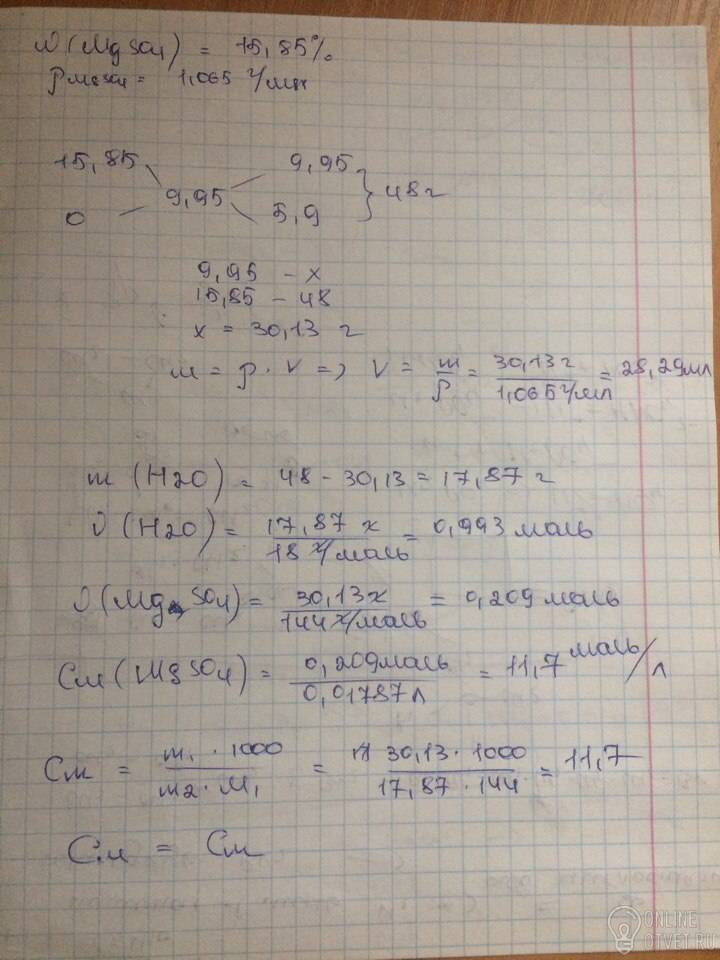 ω(MgSO4) = 15,85%
ρMgSO4 = 1,065 г/мл
15,85 9,95
9,95 } 48 г
0 5,9
9,95 – x
15,85 – 48
x = 30,13 г
m = ρ · V => V = m/ρ = 30,13 г/1,065 г/мл = 28,29 мл
m (H2O) = 48 - 30,13 = 17,87 г
ν(H2O) = 17,87 г/18 г/моль = 0,993 моль
ν(MgSO4) = 30,13 г/144 г/моль = 0,209 моль
См (MgSO4) = 0,209 моль/0,01787 л = 11,7 моль/л
См = m1 · 1000/m2 · M1 = 30,13 · 1000/17,87 · 144 = 11,7
См = См
ONLINE
OTVET.RU